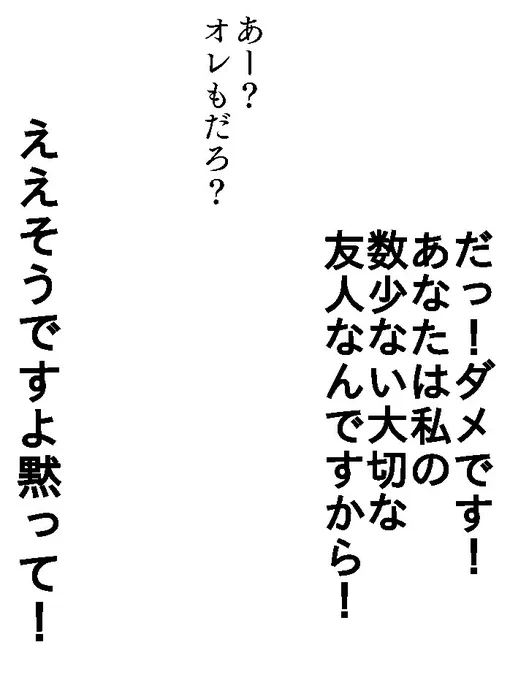 だっ！ダメです！
あなたは私の
数少ない大切な
友人なんですから！
あー？
オレもだろ？
ええそうですよ黙って！